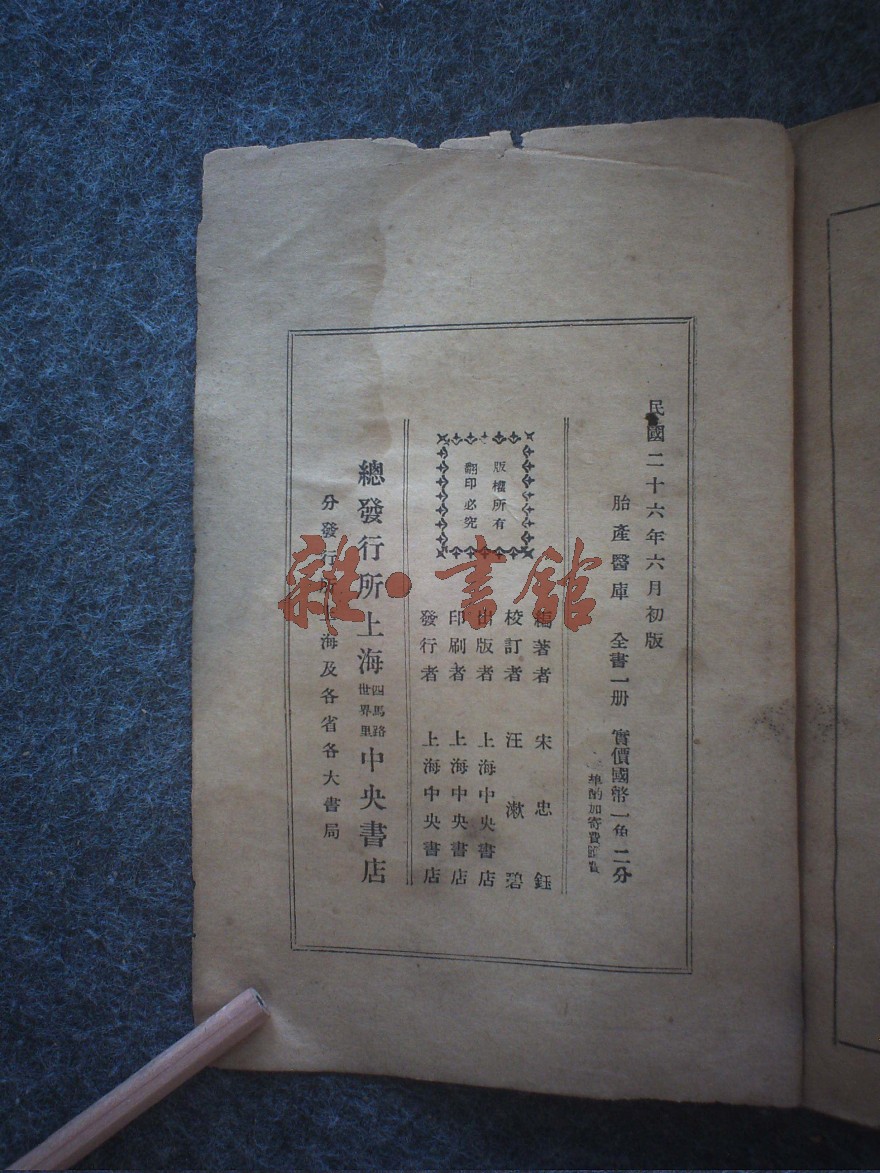 民國二十六年六月初版
胎產醫庫 全書一册 實價國幣一角二分
埠酌加寄費匯費
編著者 宋忠鈺
校訂者 汪漱碧
出版者 上海中央書店
印刷者 上海中央書店
發行者 上海中央書店
版權所有
翻印必究
總發行所上海四馬路世界里中央書店
分發行所上海及各省各大書局
雜·書館